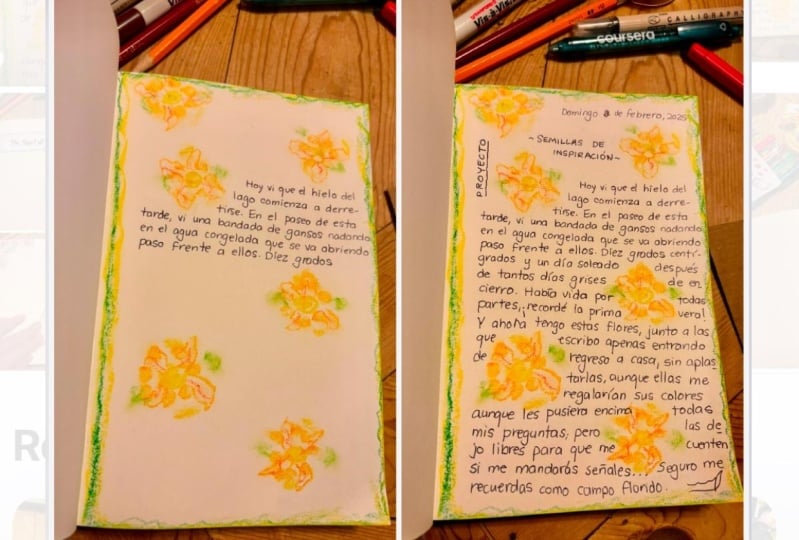 Hoy vi que el hielo del
lago comienza a derre-
tirse. En el paseo de esta
tarde, vi una bandada de gansos nadando
en el agua congelada que se va abriendo
paso frente a ellos. Diez grados
coursera
CALLIGRAPHY
Domingo de febrero, 2025
PROYECTO
~SEMILLAS DE
INSPIRACIÓN~
Hoy vi que el hielo del
lago comienza a derre-
tirse. En el paseo de esta
tarde, vi una bandada de gansos nadando
en el agua congelada que se va abriendo
paso frente a ellos. Diez grados centí-
grados y un día soleado después
de tantos días grises de en
cierro. Había vida por todas
partes, ¡recordé la prima vera!
Y ahora tengo estas flores, junto a las
que escribo apenas entrando
de regreso a casa, sin aplas
tarlas, aunque ellas me
regalarían sus colores
aunque les pusiera encima todas
mis preguntas; pero las de
jo libres para que me cuenten
si me mandarás señales... Seguro me
recuerdas como campo florido.